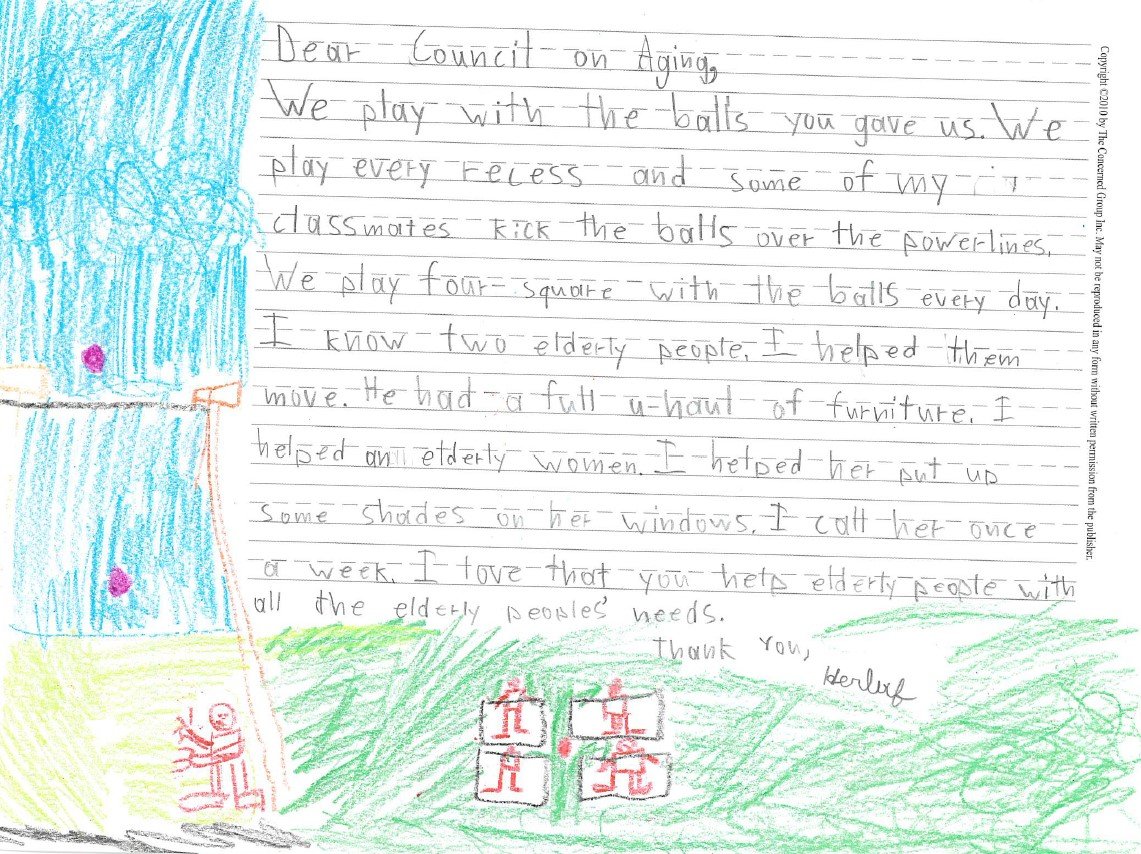 Dear Council on Aging,
We play with the balls you gave us. We
play every recess and some of my
classmates kick the balls over the powerlines.
We play four-square with the balls every day.
I know two elderly people. I helped them
move. He had a full u-haul of furniture. I
helped an elderly women. I helped her put up
some shades on her windows. I call her once
a week. I love that you help elderly people with
all the elderly peoples' needs.
Thank You,
Copyright ©2010 by The Concerned Group Inc. May not be reproduced in any form without written permission from the publisher.